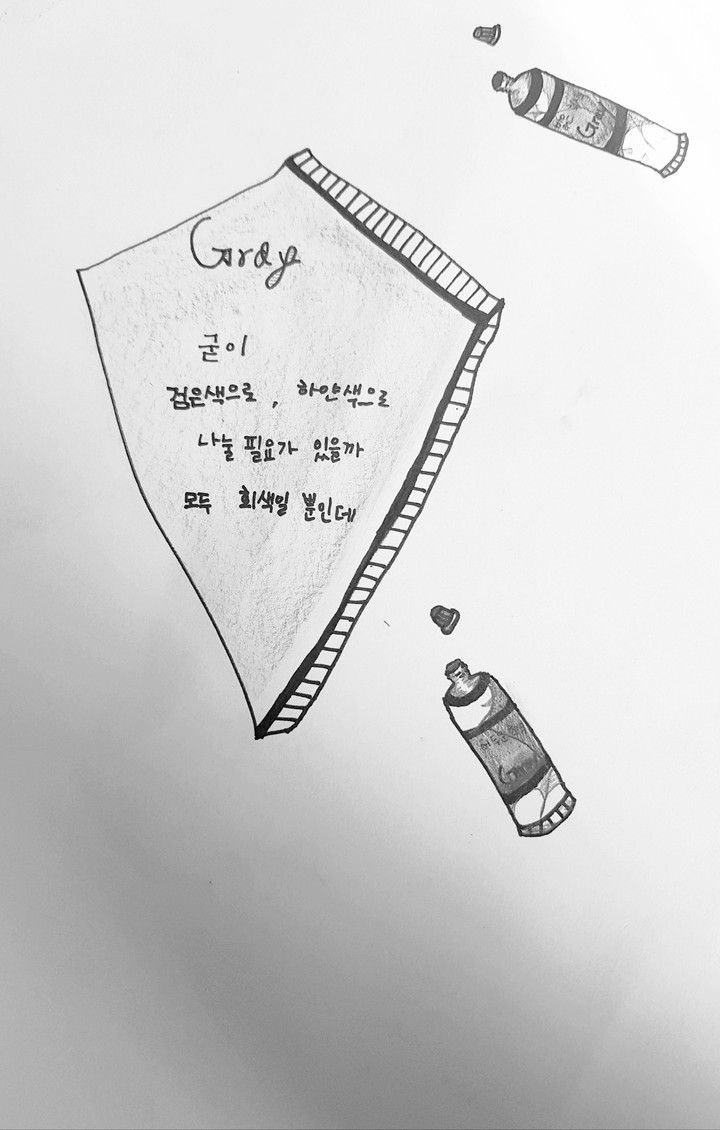 Gray
굳이
검은색으로, 하얀색으로
나눌 필요가 있을까
모두 회색일 뿐인데
Gray
어두운
Gray